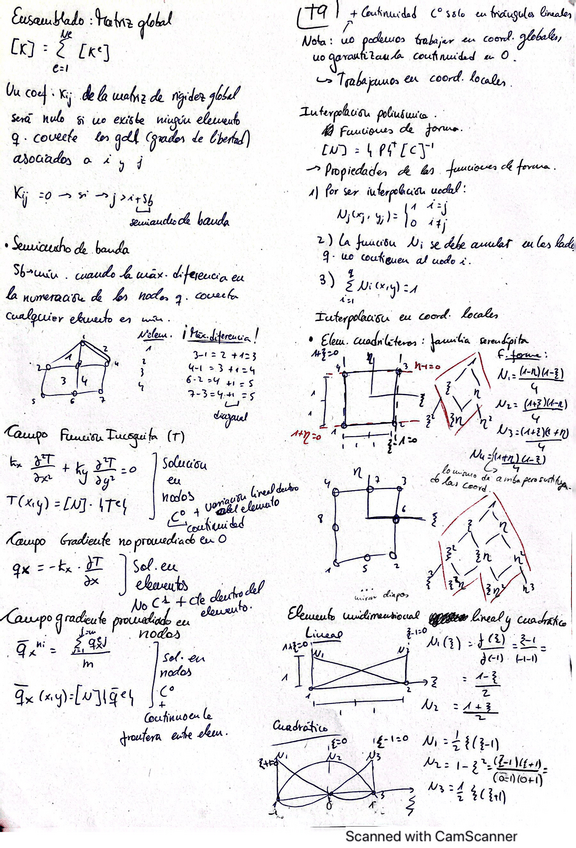 Ensamblado: Matriz global
[K] = Σ [Kᵉ]
Ne
e=1
Un coef. Kij de la matriz de rigidez global
será nulo si no existe ningún elemento
q. conecte los gdll (grados de libertad)
asociados a i y j
Kij = 0 → si → j > i+Sb
semiancho de banda
• Semiancho de banda
Sb→min. cuando la máx. diferencia en
la numeración de los nodos q. conecta
cualquier elemento es mín.
Nelem. ¡Máx. diferencia!
1 3-1 = 2 +1=3
2 4-1 = 3 +1=4
3 6-2 = 4 +1=5
4 7-3 = 4 +1=5
diagonal
1
2 1 2 4
3 4
5 6 7
Campo Función Incógnita (T)
kx ∂²T/∂x² + ky ∂²T/∂y² = 0
T(x,y) = [N]·{Te}
Solución
en
nodos
C⁰ + variación lineal dentro
del elemento
continuidad
Campo Gradiente no promediado en
qx = -kx · ∂T/∂x
Sol. en
elementos
+ cte dentro del
elemento.
Campo gradiente promediado en
nodos
m
q̄x (x,y) = [N]{q̄e}
Sol. en
nodos
C⁰
+
Continuo en la
frontera entre elem.
T9
+ Continuidad C⁰ sólo en triángulos lineales
Nota: no podemos trabajar en coord. globales
no garantizan la continuidad en
↳ Trabajamos en coord. locales.
Interpolación polinómica.
Funciones de forma.
[N] = {P}ᵀ [C]⁻¹
→ Propiedades de las funciones de forma.
1) Por ser interpolación nodal:
Nj(xi, yi) = {1 i=j
0 i≠j
2) La función Ni se debe anular en los lados
q. no contienen al nodo i.
3) Σ Ni(x,y) = 1
i=1
Interpolación en coord. locales
• Elem. cuadriláteros: familia serendípita
F. forma:
1+ξ=0
η
4 3
η-1=0
1 2
1+η=0
ξ
N1 = (1-η)(1-ξ)/4
N2 = (1+ξ)(1-η)/4
N3 = (1+ξ)(1+η)/4
N4 = (1+η)(1-ξ)/4
1
ξ η
ξ² ξη η²
η
4 7 3
8 6 ξ
1 5 2
1
ξ η
ξ² ξη η²
η³
mirar diapos
Elemento unidimensional lineal y cuadrático
Lineal
1+ξ=0
ξ-1=0
N1
1 2 ξ
N1(ξ) = f(ξ)/f(-1) = ξ-1/(-1-1) =
= 1-ξ/2
N2 = 1+ξ/2
Cuadrático
ξ=0 ξ-1=0
N1 N2 N3
N1 = 1/2 ξ(ξ-1)
N2 = 1-ξ² = (ξ-1)(ξ+1)/(0-1)(0+1) =
N3 = 1/2 ξ(ξ+1)
Scanned with CamScanner